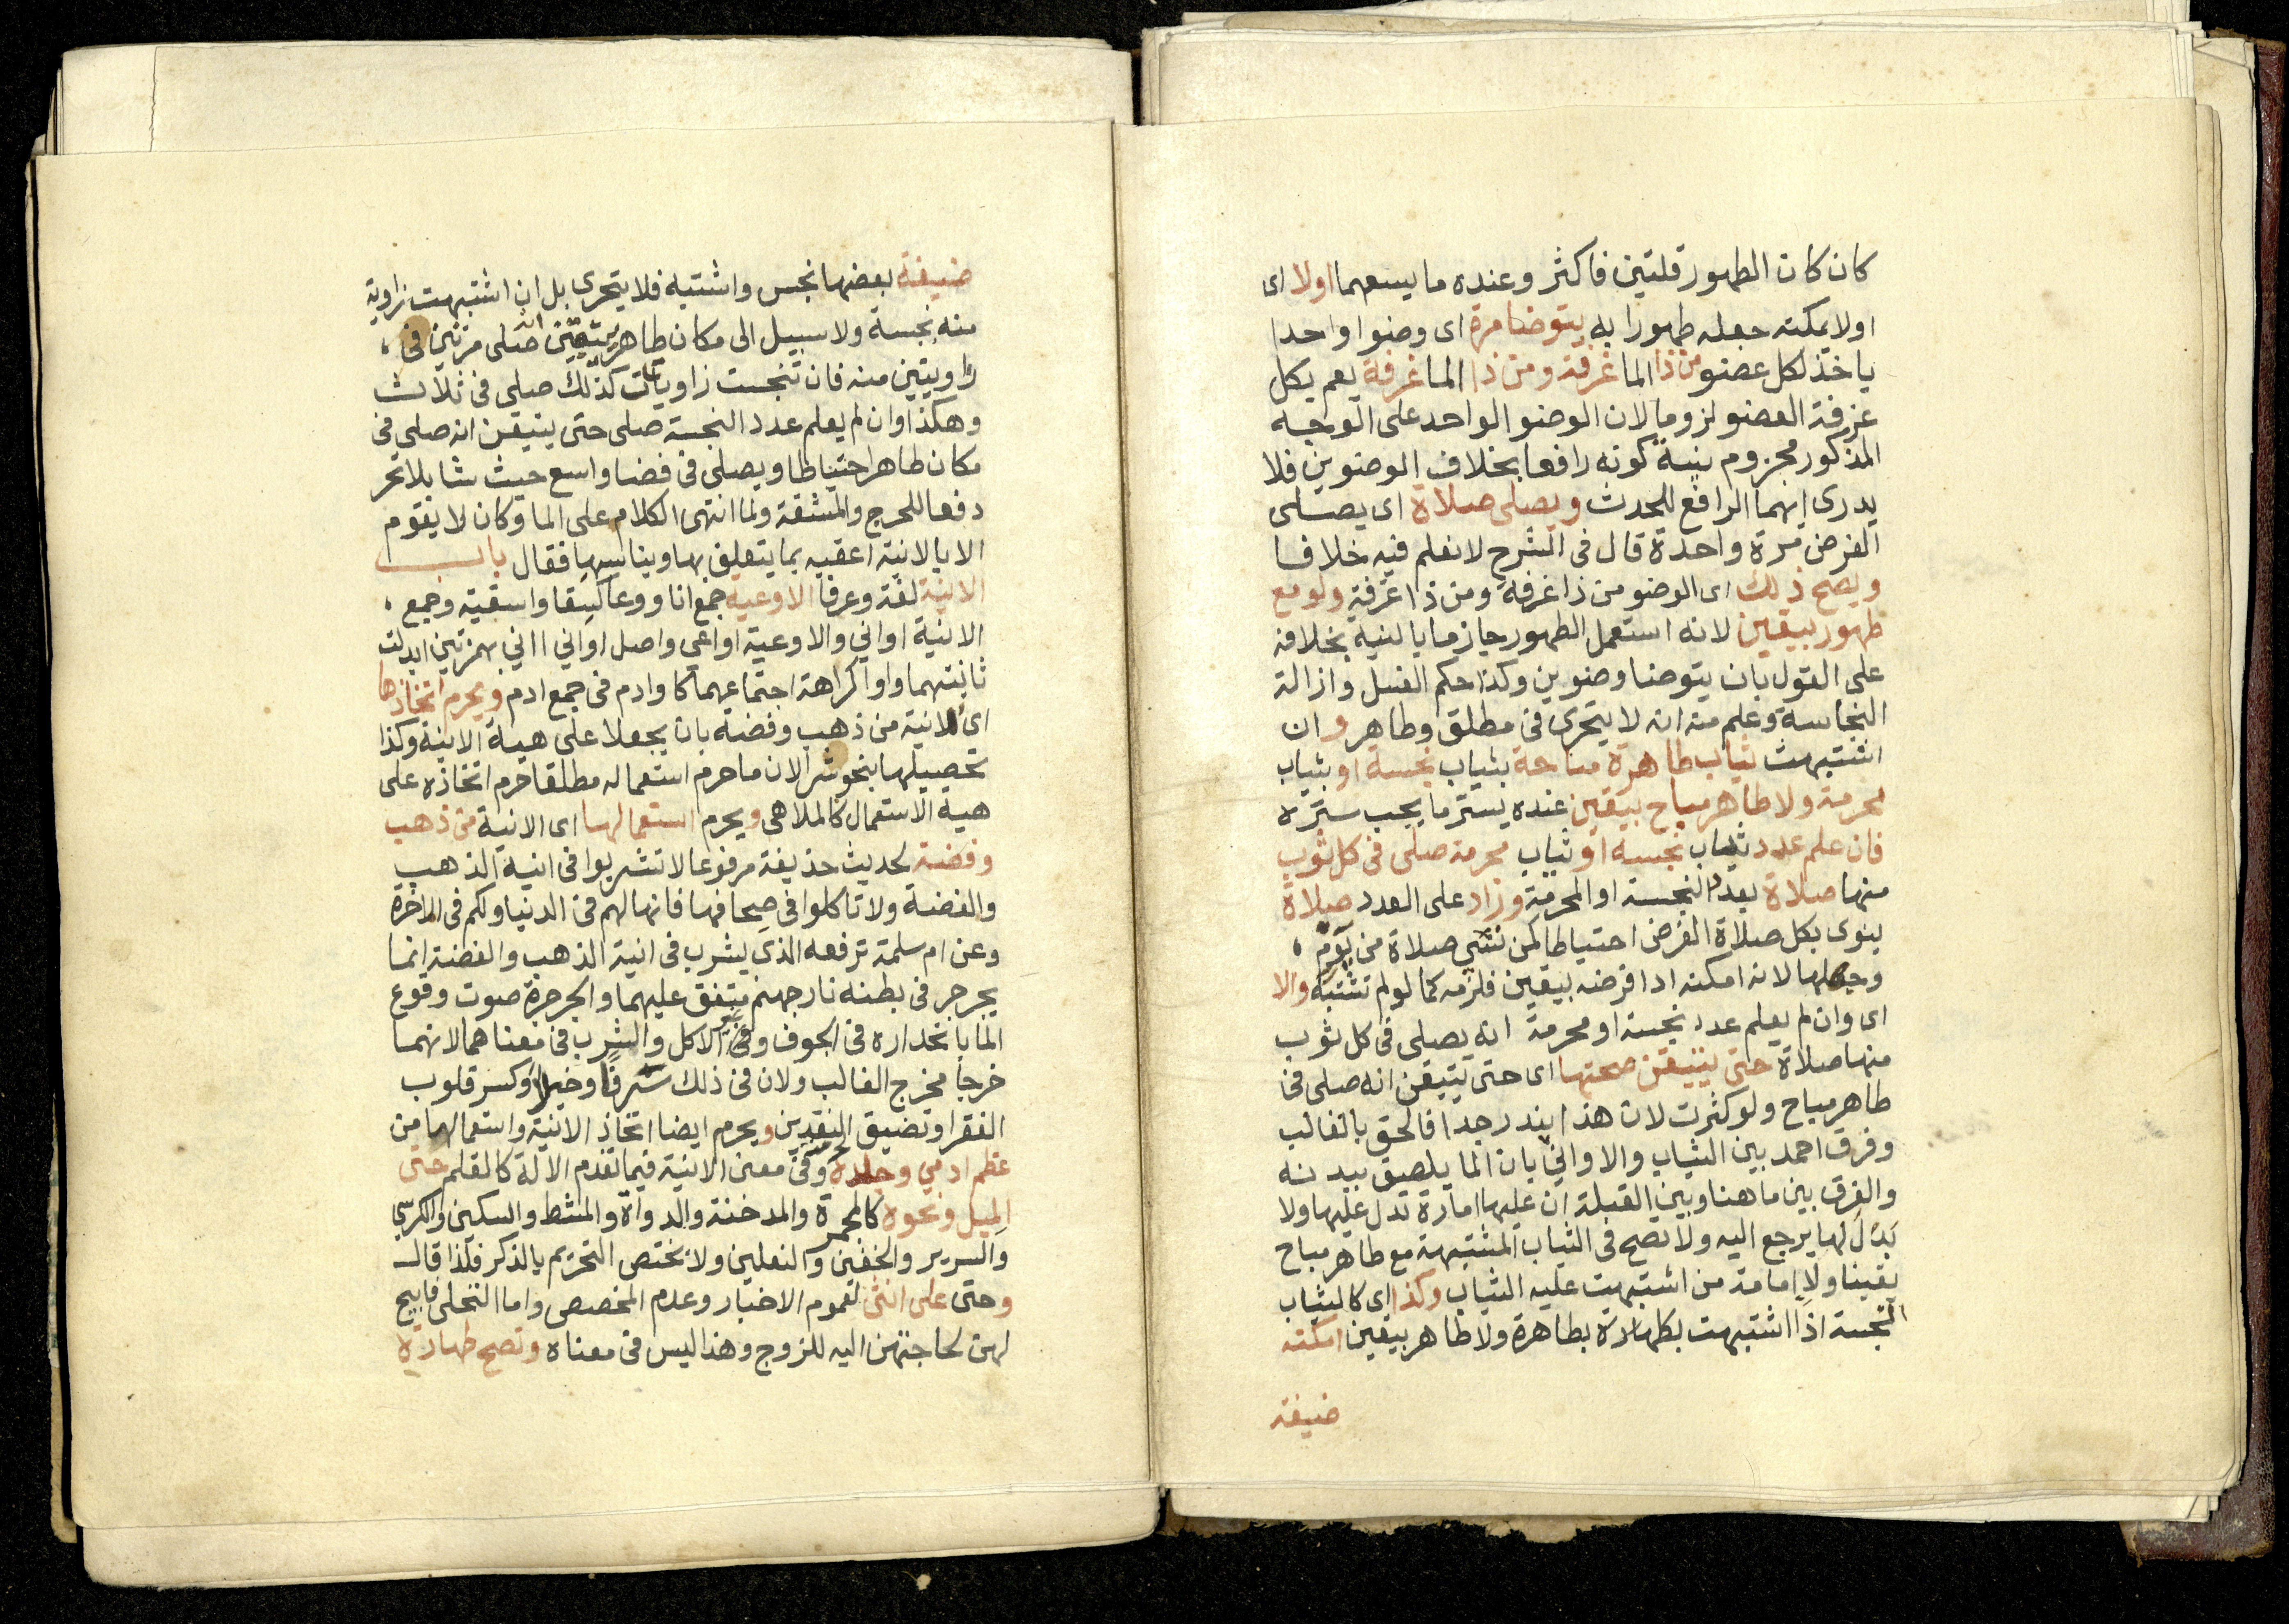 كان كان الطهور قلتين فاكثر وعنده ما يسعهما اولا اى
اولا يمكنه جعله طهورا به يتوضا مرة اى وضوا واحدا
ياخذ لكل عضو من ذا الما غرفة ومن ذا الما غرفة يعم بكل
غرفة العضو لزوما لان الوضو الواحد على الوجه
المذكور مجزوم بنية كونه رافعا بخلاف الوضوين فلا
يدرى ايهما الرافع للحدث ويصلى صلاة اى يصلى
الفرض مرة واحدة قال فى الشرح لا نعلم فيه خلافا
ويصح ذلك اى الوضو من ذا غرفة ومن ذا غرفة ولو مع
طهور بيقين لانه استعمل الطهور جازما بالنية بخلافه
على القول بان يتوضا وضوين وكذا حكم الغسل وازالة
النجاسة وعلم منه انه لا يتحرى فى مطلق وطاهر وان
اشتبهت ثياب طاهرة مباحة بثياب نجسة او بثياب
محرمة ولا طاهر مباح بيقين عنده يستر ما يجب ستره
فان علم عدد ثياب نجسه او ثياب محرمة صلى فى كل ثوب
منها صلاة بعدد النجسة او المحرمة وزاد على العدد صلاة
ينوى بكل صلاة الفرض احتياطا كمن نسى صلاة من يوم
وجهلها لانه امكنه ادا فرضه بيقين فلزمه كما لو لم تشتبه والا
اى وان لم يعلم عدد نجسة او محرمة انه يصلى فى كل ثوب
منها صلاة حتى يتيقن صحتها اى حتى يتيقن انه صلى فى
طاهر مباح ولو كثرت لان هذا يندر جدا فالحق بالغالب
وفرق احمد بين الثياب والاواني بان الما يلصق ببدنه
والفرق بين ما هنا وبين القبلة ان عليها امارة تدل عليها ولا
بدل لها يرجع اليه ولا تصح فى الثياب المشتبهة مع طاهر مباح
يقينا ولا امامة من اشتبهت عليه الثياب وكذا اى كالثياب
النجسة اذا اشتبهت بطاهرة ولا طاهر بيقين امكنه
ضيقة
ضيقة بعضها نجس واشتبه فلا يتحرى بل ان اشتبهت زاوية
منه نجسة ولا سبيل الى مكان طاهر بيقين صلى مرتين فى
زاويتين منه فان تنجست زاويتان كذلك صلى فى ثلاث
وهكذا وان لم يعلم عدد النجسة صلى حتى يتيقن انه صلى فى
مكان طاهر احتياطا ويصلى فى فضا واسع حيث شا بلا تحر
دفعا للحرج والمشقة ولما انتهى الكلام على الما وكان لا يقوم
الا بالانية اعقبه بما يتعلق بها ويناسبها فقال باب
الانية لغة وعرفا الاوعية جمع انا ووعا كسقا واسقية وجمع
الانية اواني والاوعية اواعى واصل اواني ااني بهمزتين ابدلت
ثانيتهما واوا كراهة اجتماعهما كاوادم فى جمع ادم ويحرم اتخاذها
اى الانية من ذهب وفضة بان يجعلا على هية الانية وكذا
تحصيلها بنحو شرا لان ما حرم استعماله مطلقا حرم اتخاذه على
هية الاستعمال كالملاهى ويحرم استعمالها اى الانية من ذهب
وفضة لحديث حذيفة مرفوعا لا تشربوا فى انية الذهب
والفضة ولا تاكلوا فى صحافها فانها لهم فى الدنيا ولكم فى الاخرة
وعن ام سلمة ترفعه الذى يشرب فى انية الذهب والفضة انما
يجرجر فى بطنه نار جهنم متفق عليهما والجرجرة صوت وقوع
الما بانحداره فى الجوف وغير الاكل والشرب فى معناهما لانهما
خرجا مخرج الغالب ولان فى ذلك سرفا وخيلا وكسر قلوب
الفقرا وتضييق النقدين ويحرم ايضا اتخاذ الانية واستعمالها من
عظم ادمي وجلده وفى معنى الانية فيما تقدم الالة كالقلم حتى
الميل ونحوه كالمجمرة والمدخنة والدواة والمشط والسكين والكرسي
والسرير والخفين والنعلين ولا يختص التحريم بالذكر فلذا قال
وحتى على انثى لعموم الاخبار وعدم المخصص واما التحلى فابيح
لهن لحاجتهن اليه للزوج وهذا ليس فى معناه وتصح طهارة